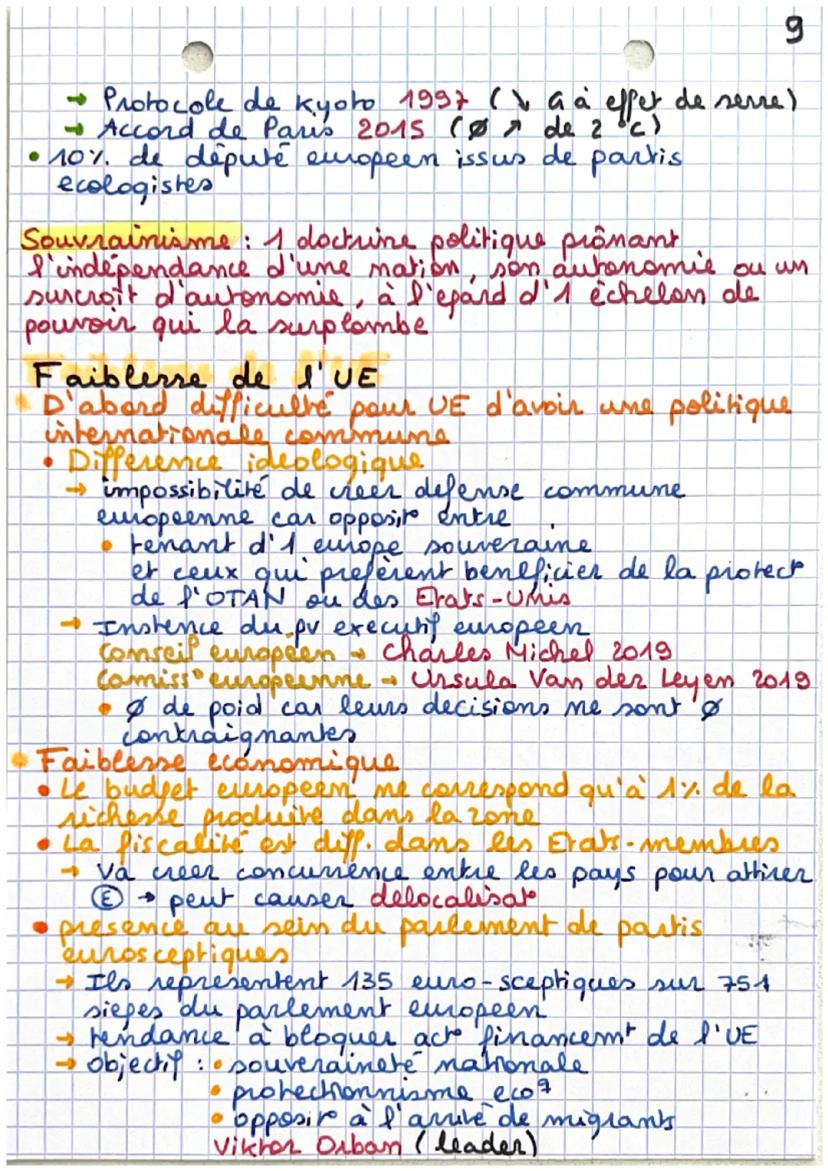 9
→ Protocole de Kyoto 1997 (↘ G à effet de serre)
→ Accord de Paris 2015 (Ø ↗ de 2 °C)
• 10% de députe européen issus de partis
ecologistes
Souvrainisme : 1 doctrine politique prônant
l'indépendance d'une nation, son autonomie ou un
surcroît d'autonomie, à l'égard d'1 échelon de
pouvoir qui la surplombe
Faiblesse de l'UE
D'abord difficulté pour UE d'avoir une politique
internationale commune
• Différence idéologique
→ impossibilité de creer defense commune
europeenne car opposit° entre
• tenant d'1 europe souveraine
et ceux qui preferent beneficier de la protect°
de l'OTAN ou des Etats-Unis
→ Instence du pv executif européen
Conseil européen → Charles Michel 2019
Comiss° européenne → Ursula Van der Leyen 2019
• Ø de poid car leurs decisions ne sont Ø
contraignantes
Faiblesse économique
• Le budget européen ne correspond qu'à 1% de la
richesse produite dans la zone
• La fiscalité est diff. dans les Etats-membres
→ Va creer concurrence entre les pays pour attirer
Ⓔ → peut causer delocalisat°
• présence au sein du parlement de partis
eurosceptiques
→ Ils representent 135 euro-sceptiques sur 751
sieges du parlement européen
→ tendance à bloquer act° financemt de l'UE
→ objectif : • souveraineté nationale
• protectionnisme ecoq
• opposit° à l'arrivé de migrants
Viktor Orban (leader)